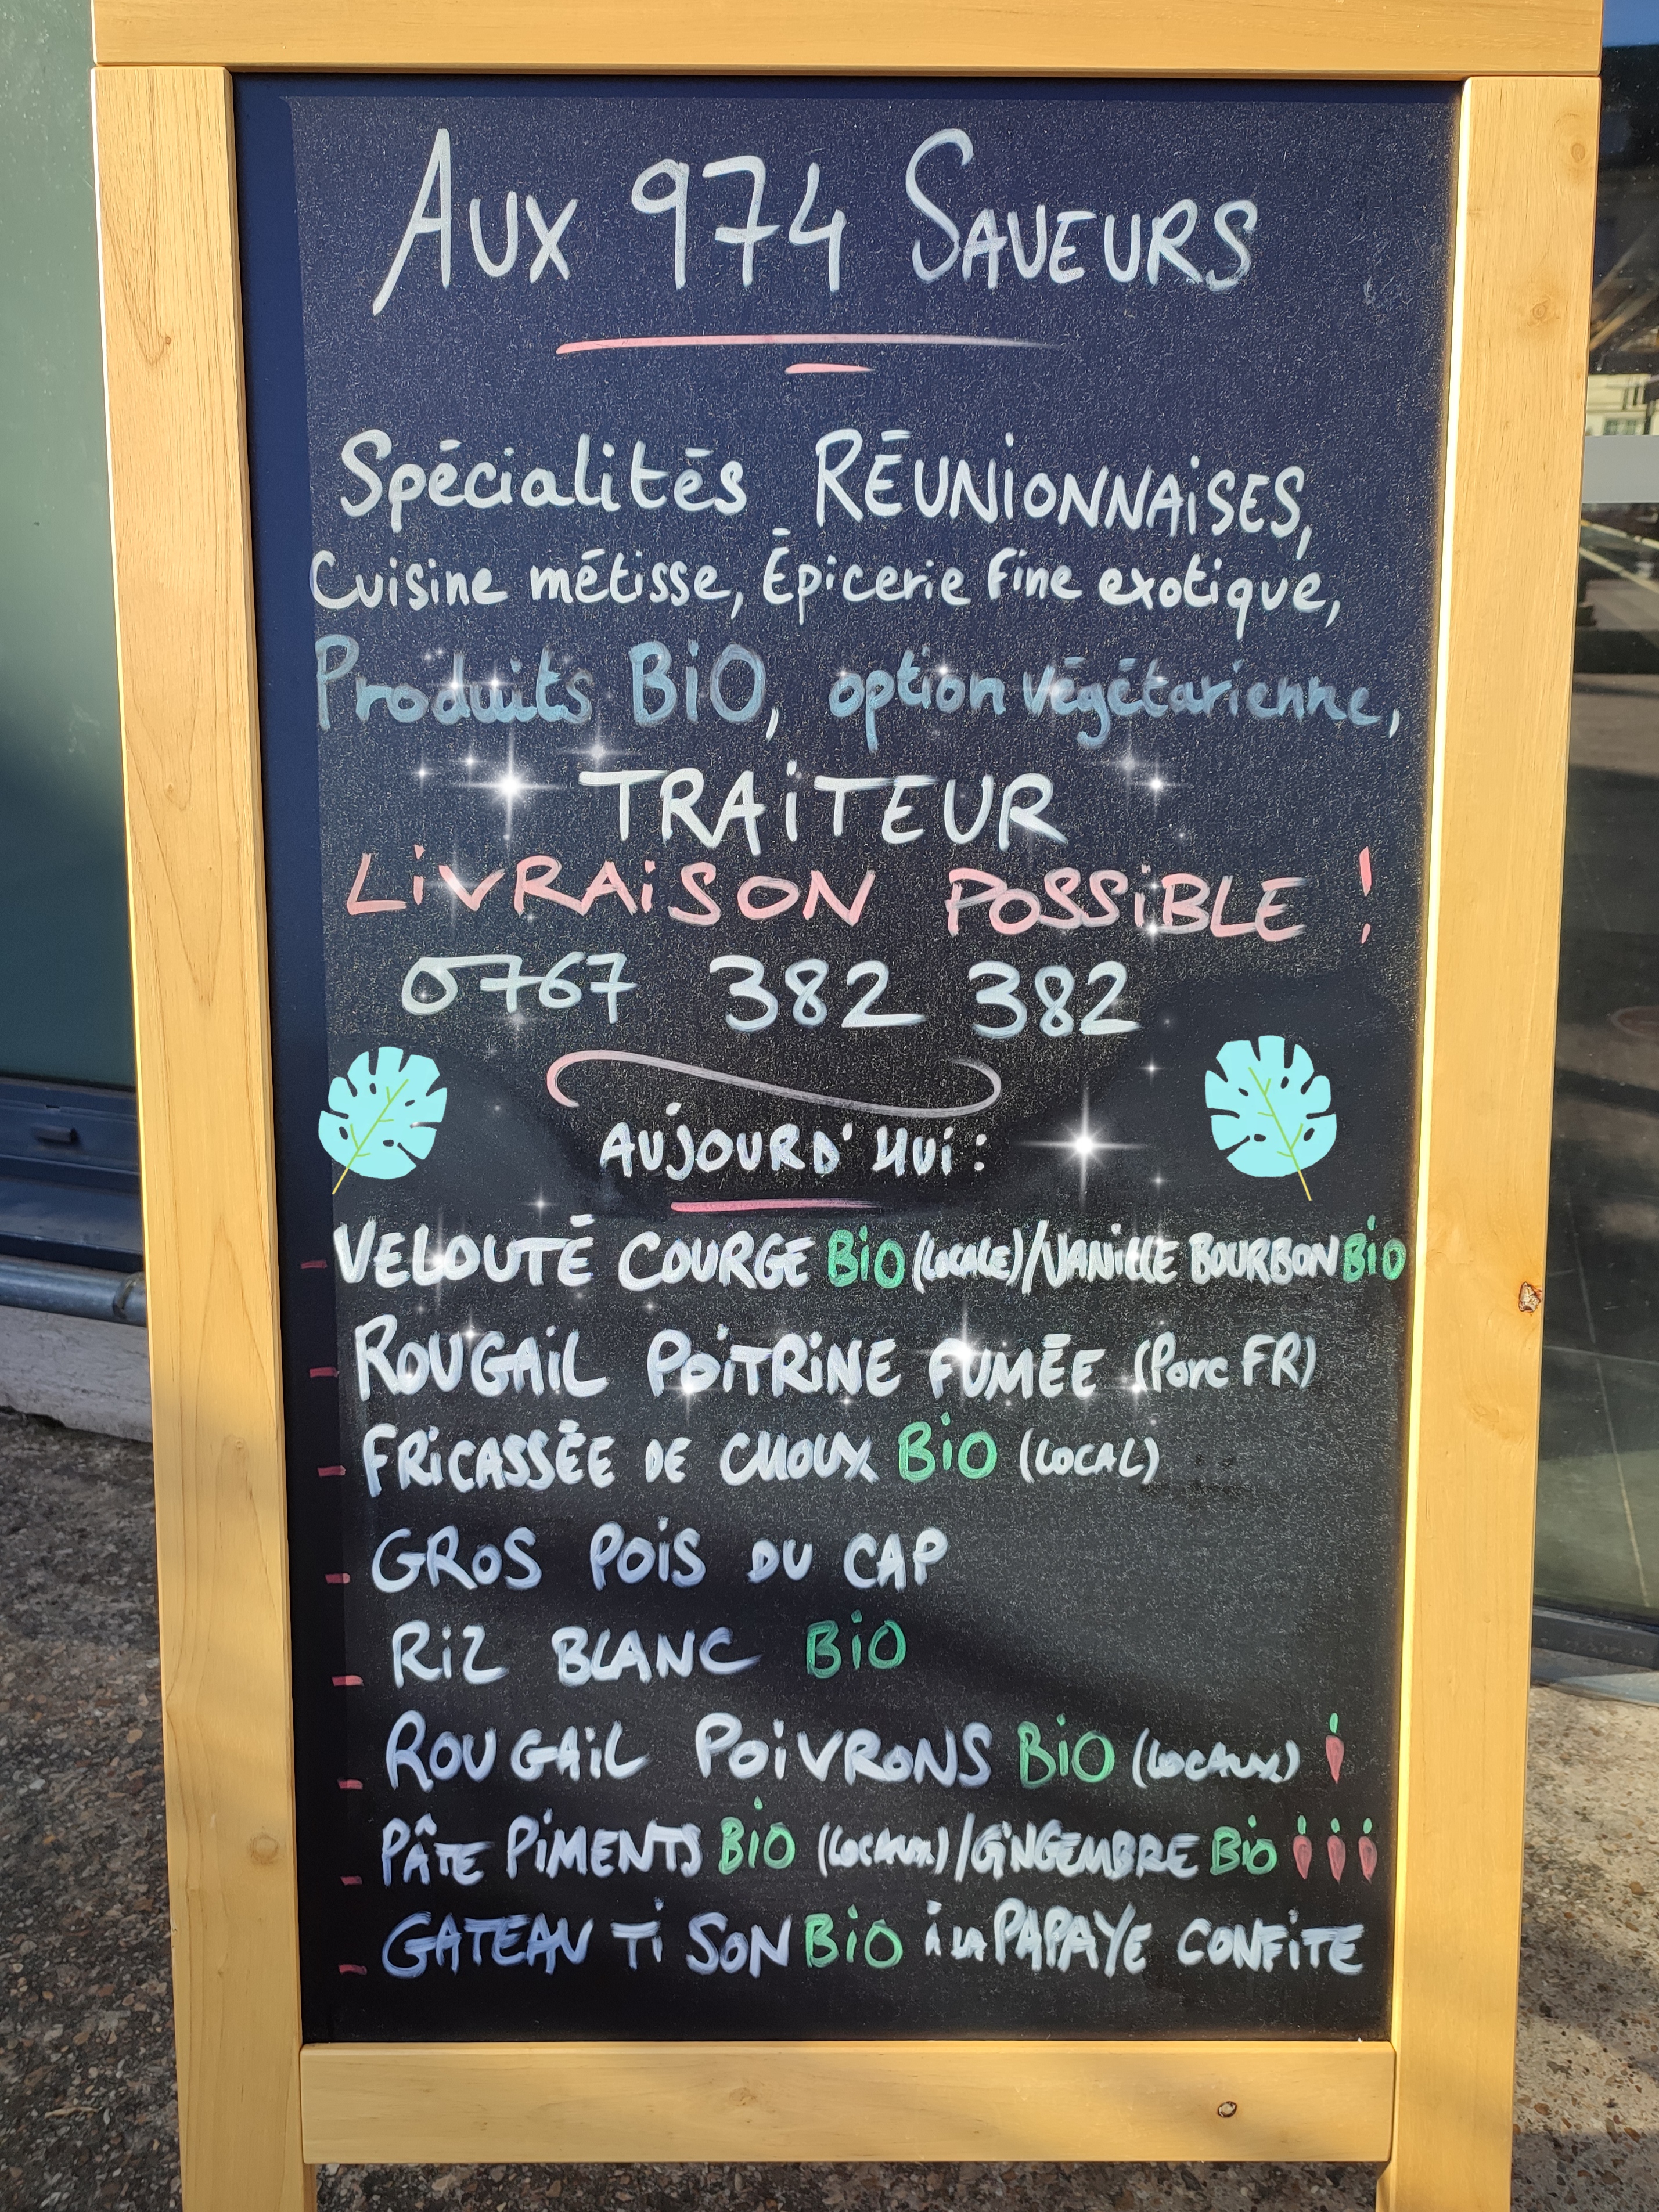 AUX 974 SAVEURS
Spécialités RÉUNIONNAISES,
Cuisine métisse, Épicerie Fine exotique,
Produits BIO, option végétarienne,
TRAITEUR
LIVRAISON POSSIBLE !
0767 382 382
AUJOURD'HUI :
- VELOUTÉ COURGE BIO (LOCALE)/VANILLE BOURBON BIO
- ROUGAIL POITRINE FUMÉE (Porc FR)
- FRICASSÉE DE CHOUX BIO (LOCAL)
- GROS POIS DU CAP
- RIZ BLANC BIO
- ROUGAIL POIVRONS BIO (LOCAUX)
- PÂTE PIMENTS BIO (LOCAUX)/GINGEMBRE BIO
- GATEAU TI SON BIO à LA PAPAYE CONFITE